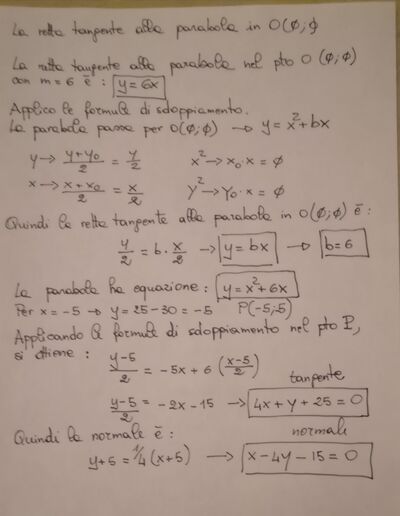 La retta tangente alla parabola in O(ø;ø)
La retta tangente alla parabola nel pto O (ø;ø)
con m = 6 è : y = 6x
Applico le formule di sdoppiamento.
La parabola passa per O(ø;ø) → y = x² + bx
y → (y+y₀)/2 = y/2 x² → x₀·x = ø
x → (x+x₀)/2 = x/2 y² → y₀·x = ø
Quindi la retta tangente alla parabola in O(ø;ø) è :
y/2 = b · x/2 → y = bx → b = 6
La parabola ha equazione : y = x² + 6x
Per x = -5 → y = 25 - 30 = -5 P(-5;-5)
Applicando le formule di sdoppiamento nel pto P,
si ottiene : (y-5)/2 = -5x + 6 ((x-5)/2)
tangente
(y-5)/2 = -2x - 15 → 4x + y + 25 = 0
Quindi la normale è : normale
y+5 = 1/4 (x+5) → x - 4y - 15 = 0